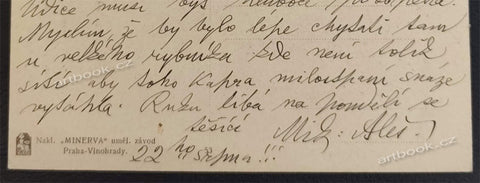 Udice musí býs hluboce
Myslím, že by bylo lépe chytati tam
u velkého rybníka kde není tolik
sítin aby toho kapra milospaní snáze
vytáhla. Ruku líbá na pondělí se
těšící Mik: Aleš.
22ho srpna!!!
Nakl. „MINERVA" uměl. závod
Praha-Vinohrady.
artbook.cz
artbook.cz